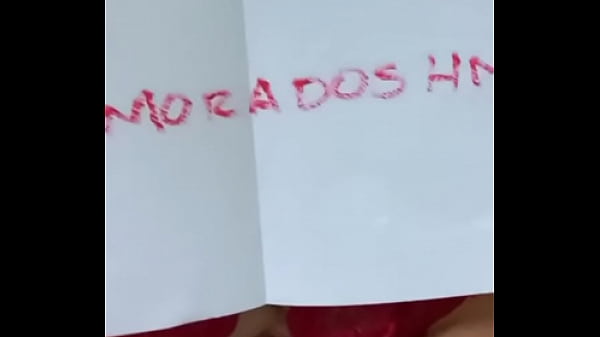 MORADOS HN